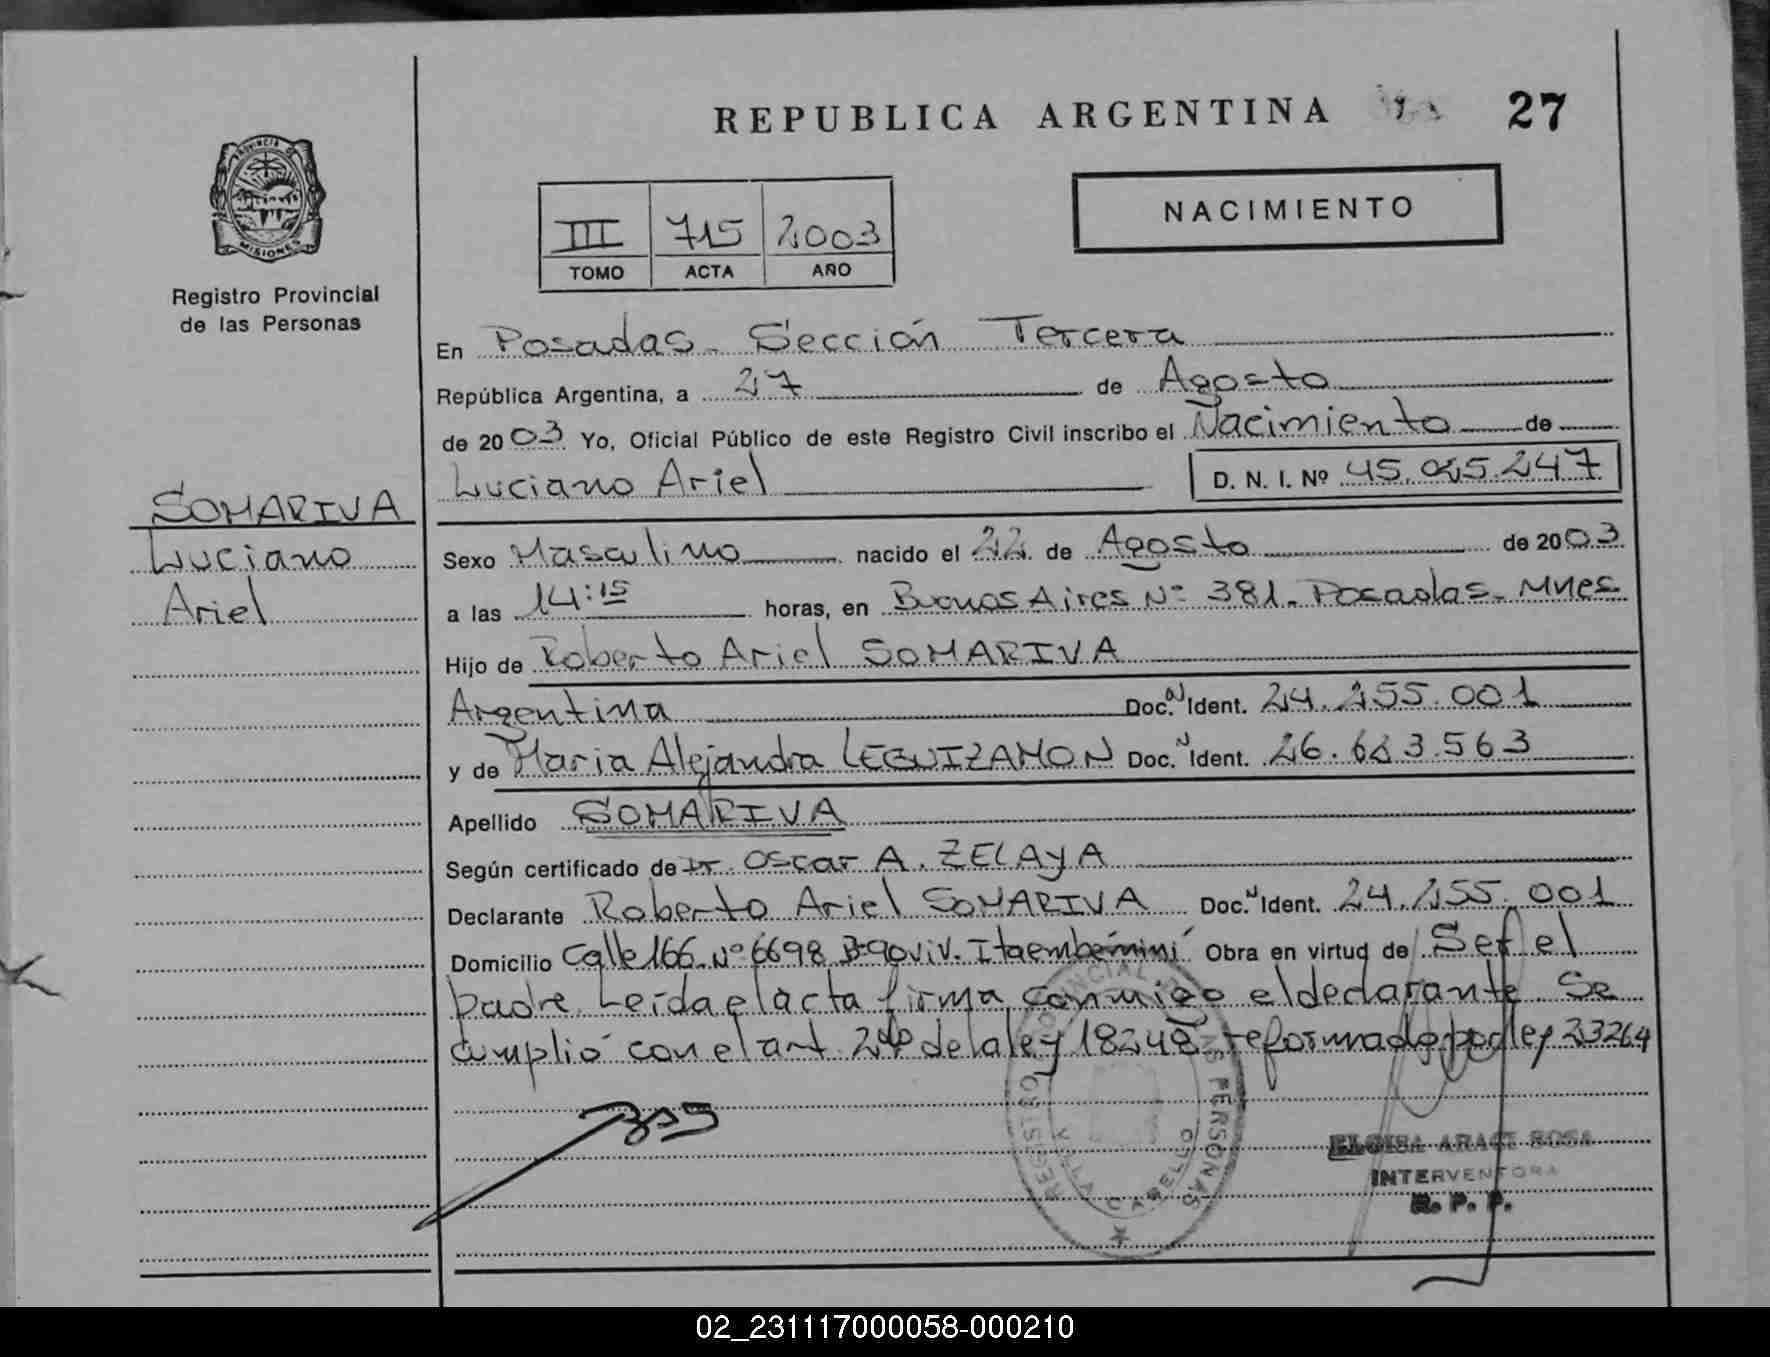 REPUBLICA ARGENTINA 27
PROVINCIA D MISIONES
Registro Provincial
de las Personas
III 715 2003
TOMO ACTA AÑO
NACIMIENTO
En Posadas - Sección Tercera
República Argentina, a 27 de Agosto
de 2003 Yo, Oficial Público de este Registro Civil inscribo el Nacimiento de
Luciano Ariel D. N. I. Nº
SOMARIVA
Luciano
Ariel
Sexo Masculino nacido el 22 de Agosto de 2003
a las 14:15 horas, en Buenos Aires Nº 381 - Posadas - Mnes
Hijo de Roberto Ariel SOMARIVA
Argentina Doc. N Ident. 24.255.001
y de Maria Alejandra LEGUIZAMON Doc. N Ident.
Apellido SOMARIVA
Según certificado de Dr. Oscar A. ZELAYA
Declarante Roberto Ariel SOMARIVA Doc. N Ident. 24.255.001
Domicilio Calle 166 Nº 6698 Bº Itaembé miní Obra en virtud de Ser el
padre. Leída el acta firma conmigo el declarante Se
cumplió con el art 2do de la ley 18248 reformado por ley 23264
REGISTRO PROVINCIAL PERSONAS
VILLA CABELLO
ARACI ROSA
INTERVENTORA
R. P. P.
02_231117000058-000210